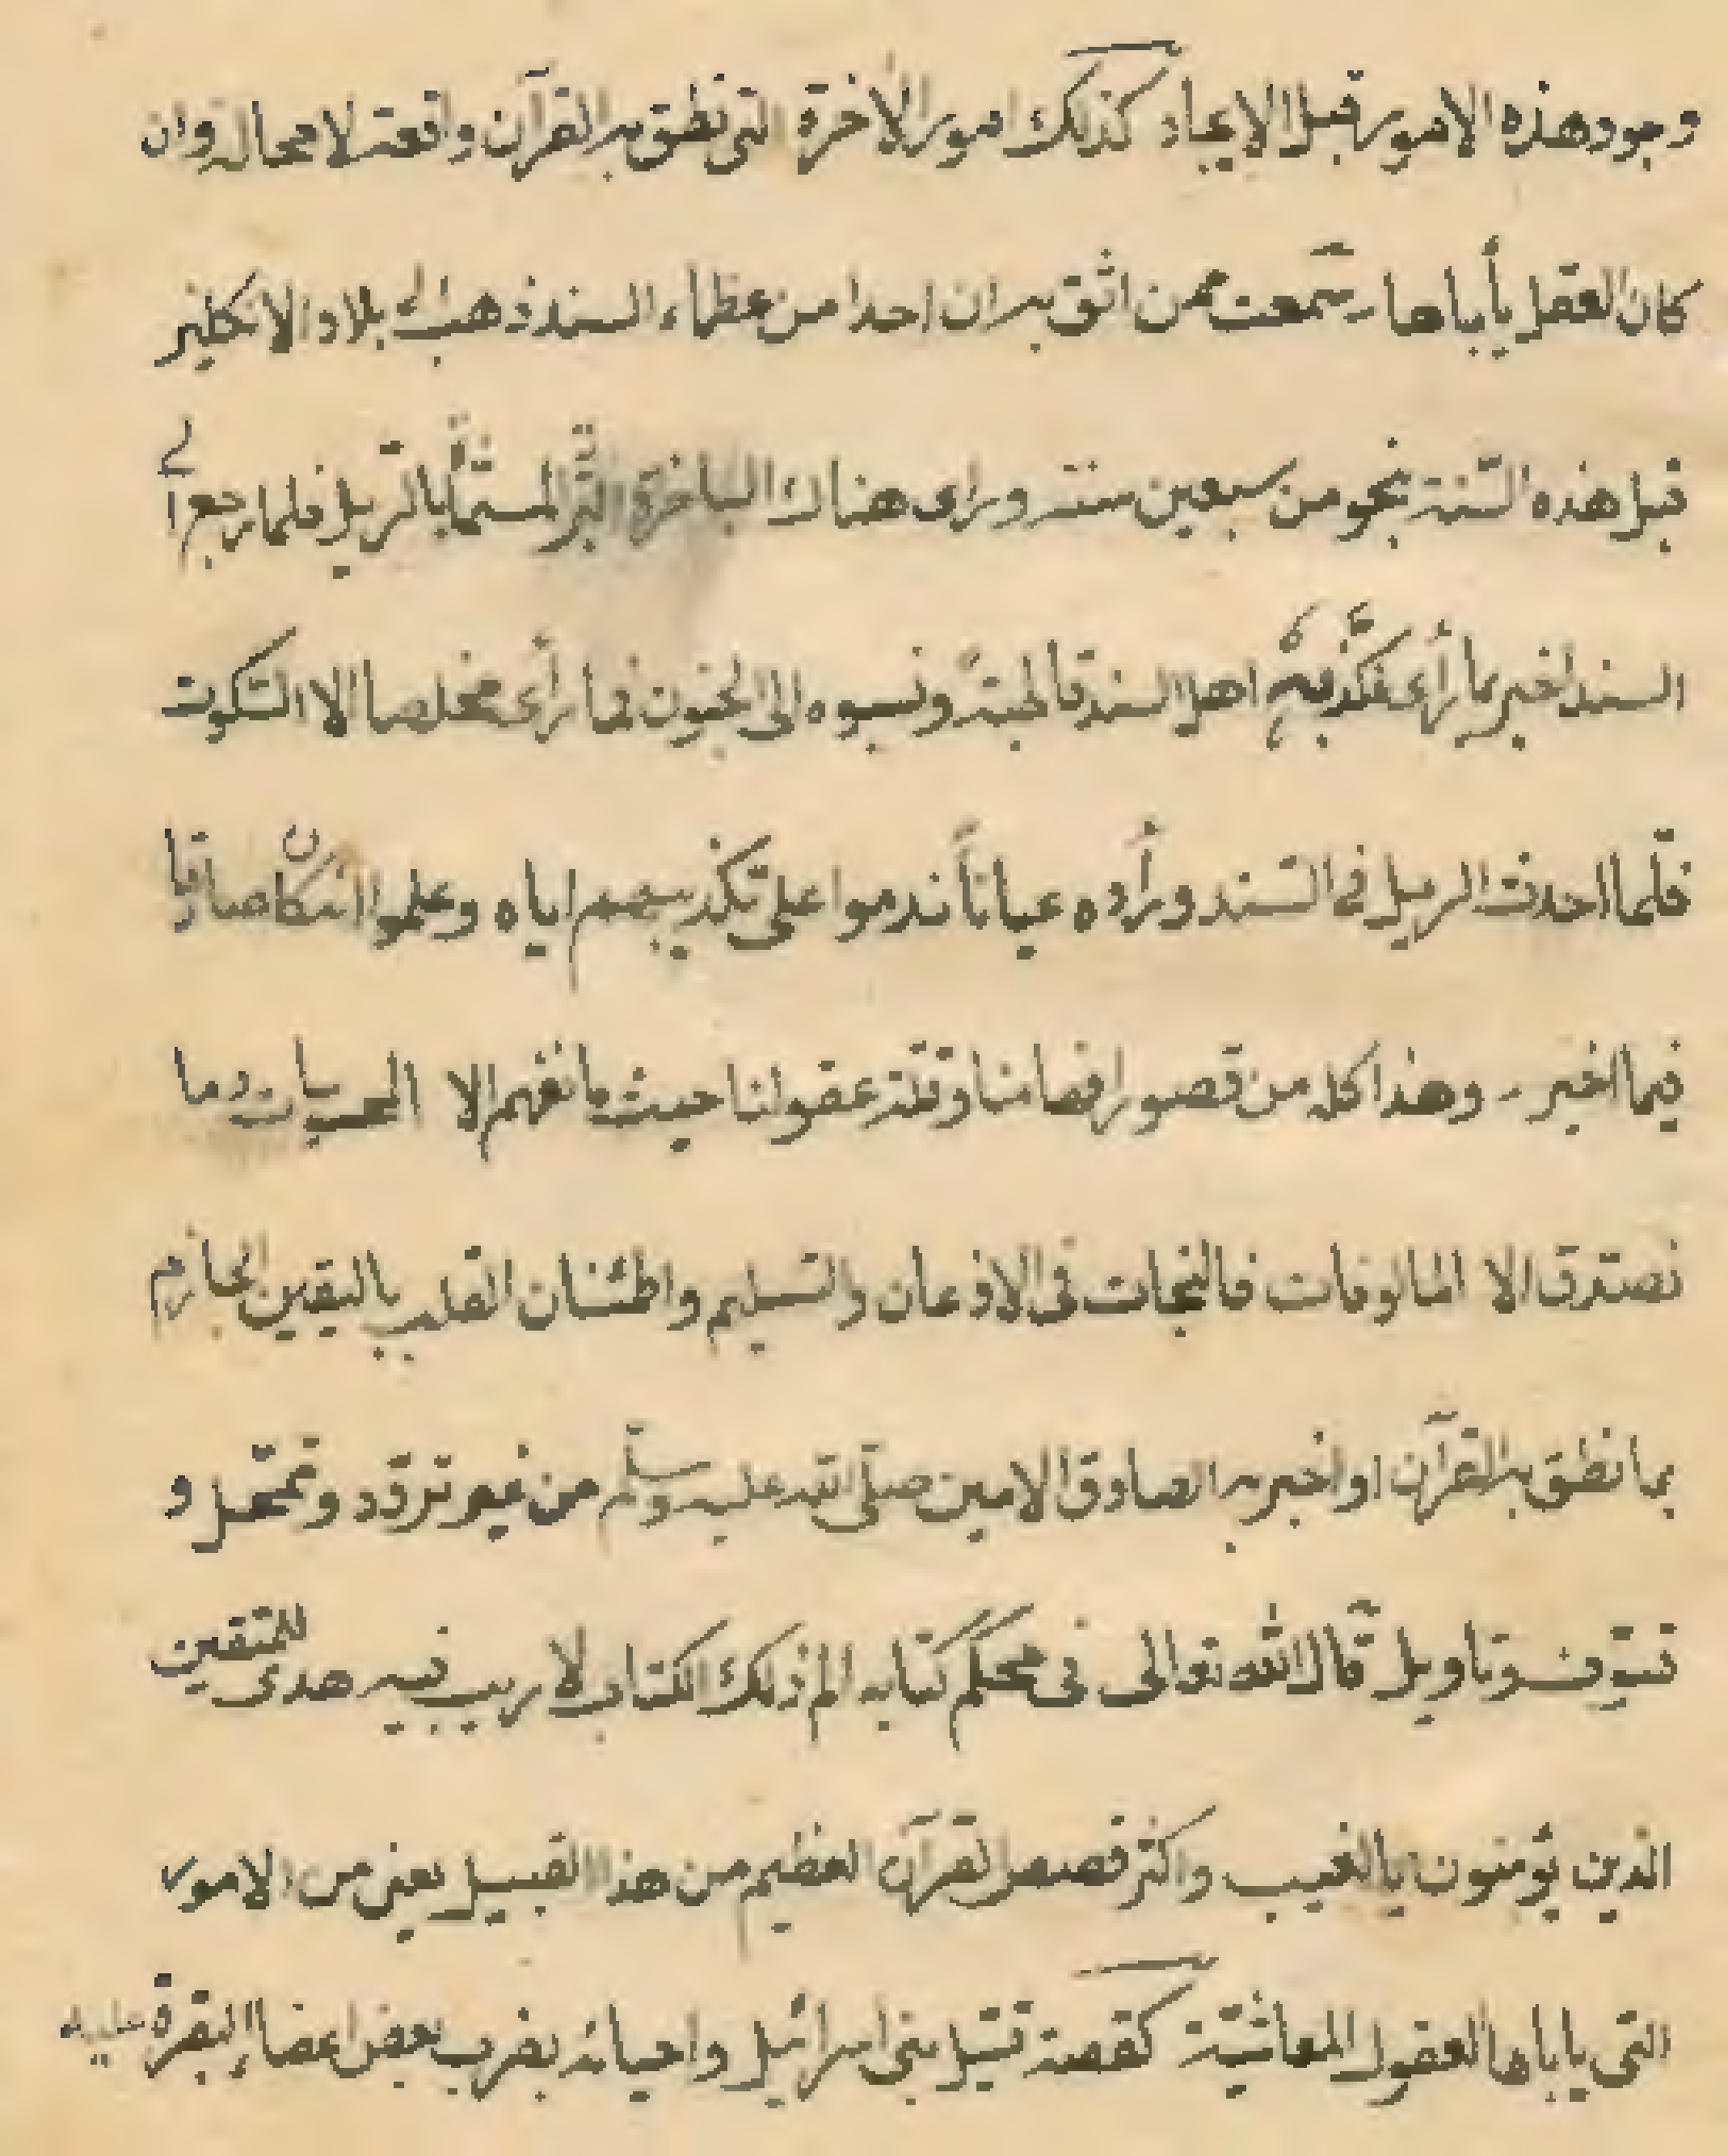 وجود هذه الامور قبل الايجاد كذلك امور الآخرة التى نطق به القرآن واقعة لا محالة وان
كان العقل يأباها سمعت ممن اثق به ان احدا من عظماء السند ذهب الى بلاد الانكليز
قبل هذه السّنة بنحو من سبعين سنة ورأى هناك الباخرة البرّ المسمّاة بالريل فلما رجع الى
السند اخبر بما رأى فكذّبه اهل السند قاطبةً ونسبوه الى الجنون فما رأى مخلصا الا السّكوت
فلّما احدث الريل فى السّند ورأوه عياناً ندموا على تكذيبهم اياه وعلموا انه كان صادقا
فيما اخبر - وهذا كله من قصور افهامنا وقلة عقولنا حيث ما نفهم الا الحسيات وما
نصدق الا المالوفات فالنجات فى الاذعان والتسليم واطمئنان القلب باليقين الجازم
بما نطق به القرآن او اخبر به الصادق الامين صلّى الله عليه وسلّم من غير تردّد وتمحّل و
تسويف وتاويل قال الله تعالى فى محكم كتابه الم ذلك الكتاب لا ريب فيه هدى للمتقين
الذين يؤمنون بالغيب واكثر قصص القرآن العظيم من هذا القبيل يعنى من الامور
التى ياباها العقول المعاشيّة كقصة قتيل بنى اسرائيل واحيائه بضرب بعض اعضاء البقرة عليه